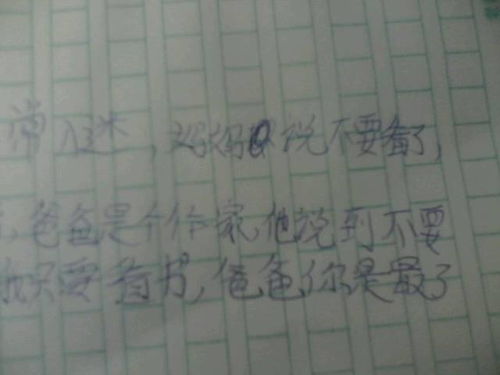 常入迷,妈妈说不要看了,
,爸爸是个作家,他说到不要
你只要看书,爸爸,你是最了